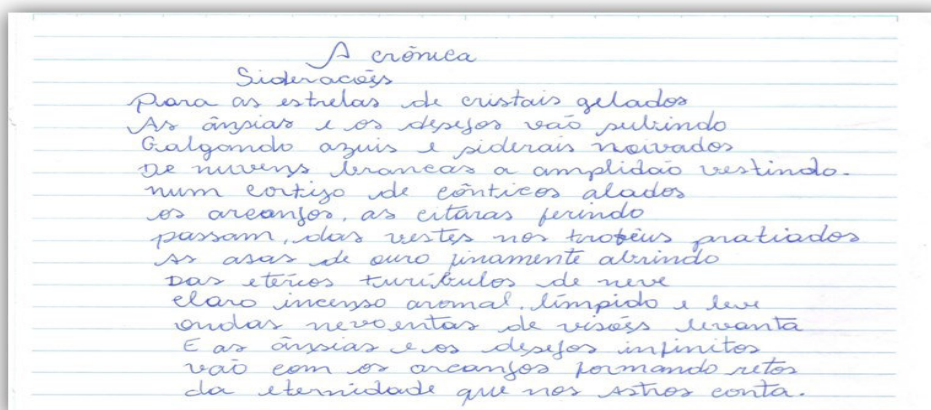 A crônica
Siderações
Para as estrelas de cristais gelados
As ânsias e os desejos vão subindo
Galgando azuis e siderais noivados
De nuvens brancas a amplidão vestindo.
num cortijo de cânticos alados
os arcanjos, as citaras ferindo
passam, das vestes nos troféus pratiados
As asas de ouro finamente abrindo
Das etéreos turíbulos de neve
claro incenso aromal, límpido e leve
ondas nevoentas de visões levanta
E as ânsias e os desejos infinitos
vão com os arcanjos formando retos
da eternidade que nos Astros conta.